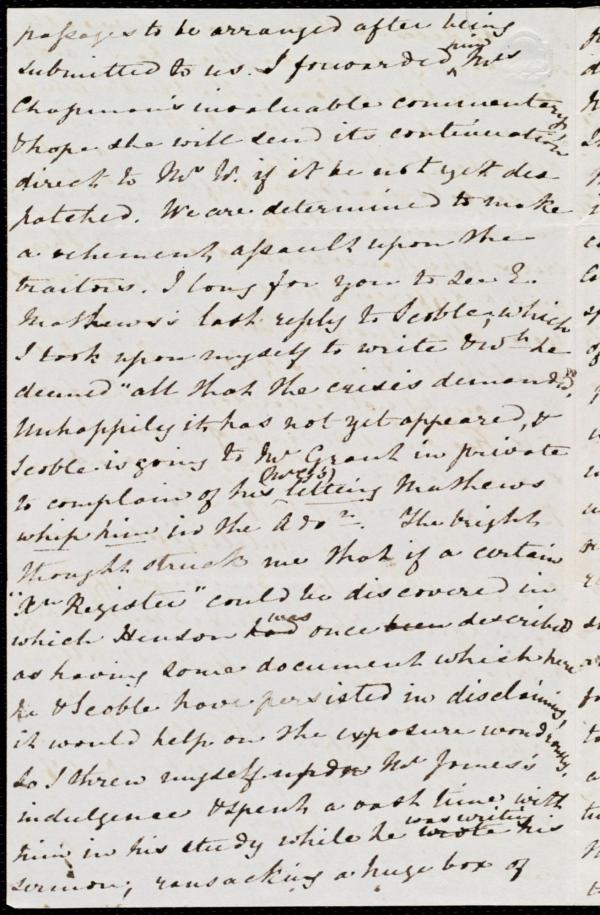 passages to be arranged after being
submitted to us. I forwarded him Mrs
Chapman's invaluable commentary
& hope she will send its continuation
direct to Mr W. if it be not yet des
patched. We are determined to make
a vehement assault upon the
traitors. I long for you to see E.
Mathews's last reply to Scoble, which
I took upon myself to write & wh he
deemed "all that the crisis demanded."
Unhappily it has not yet appeared, &
Scoble is going to Mr Grant in private
to complain of his (Mr G's) letting Mathews
whip him in the Adr. The bright
thought struck me that if a certain
"Xn Register" could be discovered in
which Henson had was once been described
as having some document which here
he & Scoble have persisted in disclaiming,
it would help on the exposure wondrously.
So I threw myself upon Mr James's
indulgence & spent a vast time with
him in his study while he wrote was writing his
sermon, ransacking a huge box of